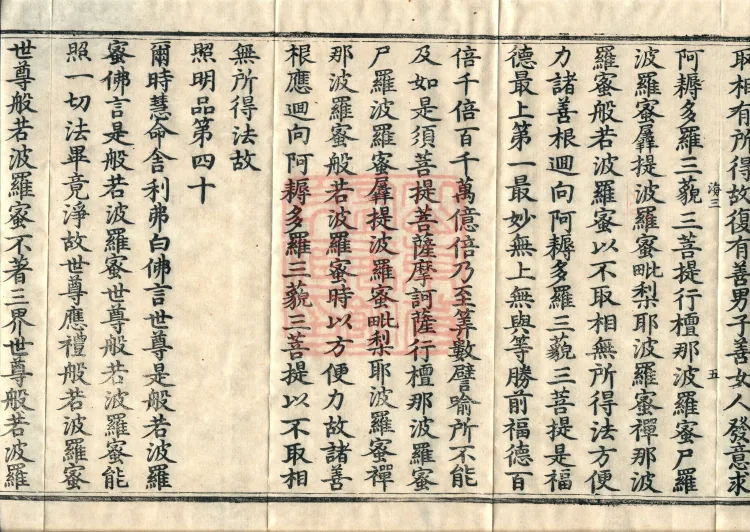 取相有所得故復有善男子善女人發意求
海三
五
阿耨多羅三藐三菩提行檀那波羅蜜尸羅
波羅蜜羼提波羅蜜毗梨耶波羅蜜禪那波
羅蜜般若波羅蜜以不取相無所得法方便
力諸善根迴向阿耨多羅三藐三菩提是福
德最上第一最妙無上無與等勝前福德百
倍千倍百千萬億倍乃至筭數譬喻所不能
及如是須菩提菩薩摩訶薩行檀那波羅蜜
尸羅波羅蜜羼提波羅蜜毗梨耶波羅蜜禪
那波羅蜜般若波羅蜜時以方便力故諸善
根應迴向阿耨多羅三藐三菩提以不取相
無所得法故
照明品第四十
爾時慧命舍利弗白佛言世尊是般若波羅
蜜佛言是般若波羅蜜世尊般若波羅蜜能
照一切法畢竟淨故世尊應禮般若波羅蜜
世尊般若波羅蜜不著三界世尊般若波羅